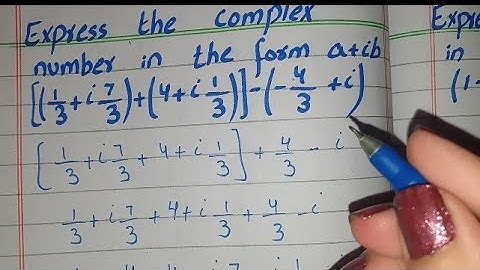 Express the complex
number in the form a+ib
[(1/3 + i 7/3) + (4 + i 1/3)] - (- 4/3 + i)
[1/3 + i 7/3 + 4 + i 1/3] + 4/3 - i
1/3 + i 7/3 + 4 + i 1/3 + 4/3 - i
Expre
in
(1-